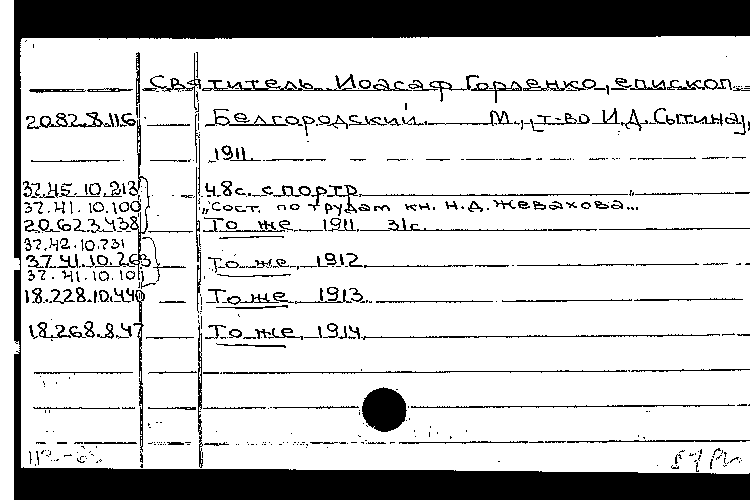 Святитель Иоасаф Горленко, епископ
2082.8.116 Белгородский. М., т-во И.Д. Сытина,
1911.
37.45.10.213 48с. с портр.
37.41.10.100 „Сост. по трудам кн. Н.Д. Жевахова...“
20.623.438 То же 1911 31с.
37.42.10.231
37.41.10.263 То же, 1912.
37.41.10.101
18.228.10.440 То же, 1913.
18.268.8.47 То же, 1914.